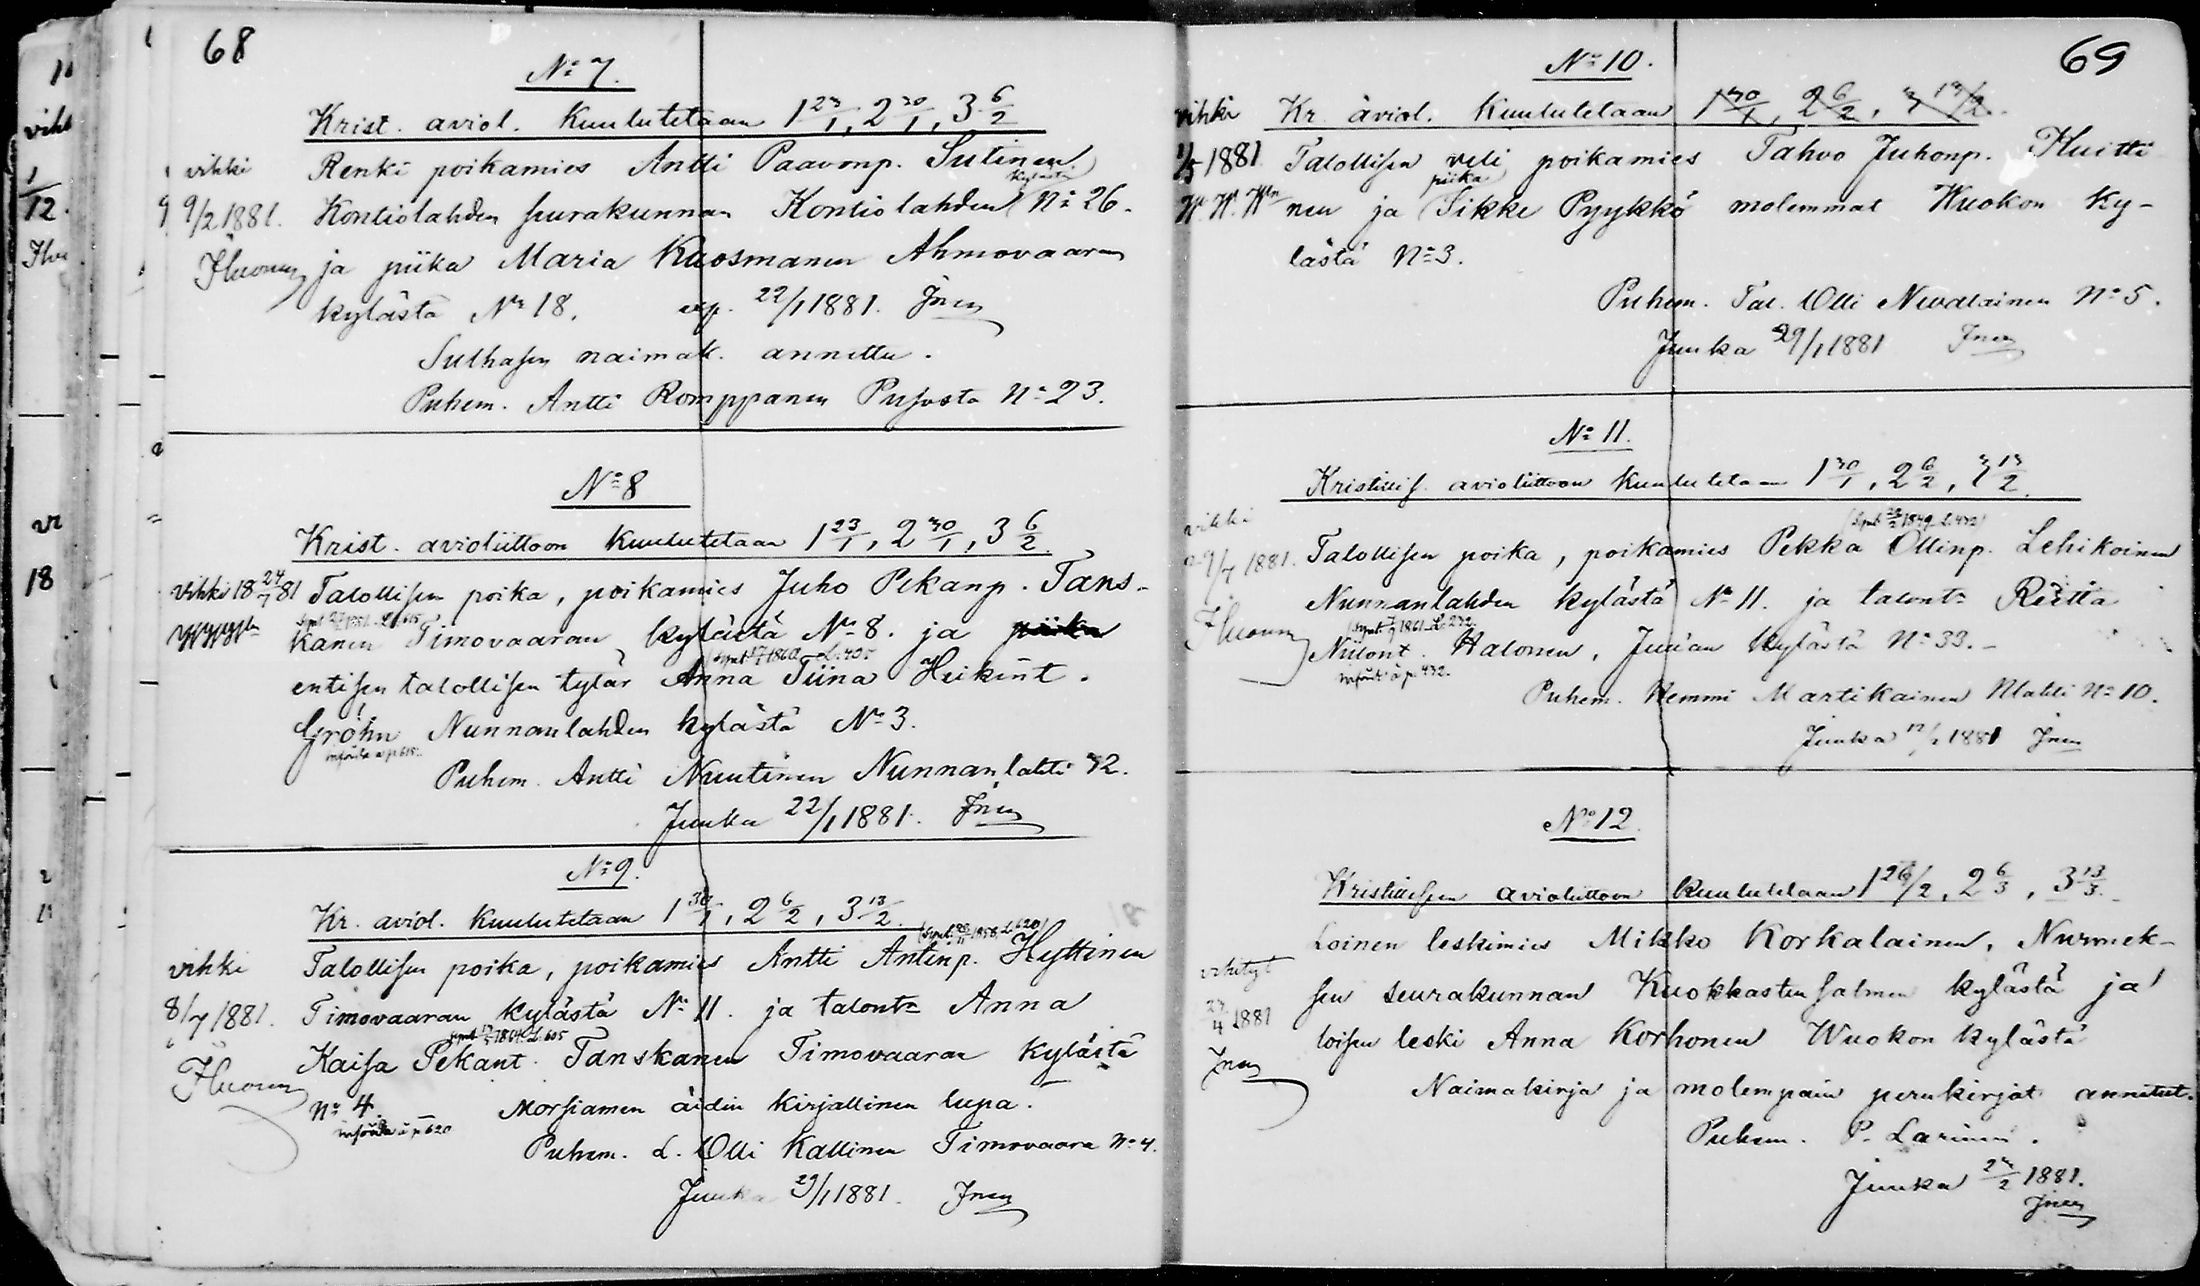 68
No 7.
Krist. aviol. Kuulutetaan 1 23/1, 2 30/1, 3 6/2
vihki Renki poikamies Antti Paavonp. Sutinen
9/2 1881. Kontiolahden seurakunnan Kontiolahden kylästä No 26.
ja piika Maria Kuosmanen Ahmovaaran
kylästä No 18. 22/1 1881. Jnen
Sulhasen naimak. annettu.
Puhem. Antti Romppanen Pusosta No 23.
No 8
Krist. avioliittoon Kuulutetaan 1 23/1, 2 30/1, 3 6/2
vihki 18 24/7 81 Talollisen poika, poikamies Juho Pekanp. Tans-
kanen Timovaaran kylästä No 8. ja piika
entisen talollisen tytär Anna Tiina Heikint.
Gröhn Nunnanlahden kylästä No 3.
Puhem. Antti Nuutinen Nunnanlahti 32.
Juuka 22/1 1881. Jnen
No 9.
Kr. aviol. Kuulutetaan 1 30/1, 2 6/2, 3 13/2
vihki Talollisen poika, poikamies Antti Antinp. Hyttinen
8/7 1881. Timovaaran kylästä No 11. ja talont. Anna
Kaisa Pekant. Tanskanen Timovaaran kylästä
No 4. Morsiamen äidin kirjallinen lupa.
Puhem. L. Olli Kallinen Timovaara No 4.
Juuka 29/1 1881. Jnen
69
No 10.
vihki Kr. aviol. Kuulutetaan 1 30/1, 2 6/2, 3 13/2
1/5 1881 Talollisen veli poikamies Tahvo Juhonp. Huitti-
nen ja piika Sikke Pyykkö molemmat Wuokon ky-
lästä No 3.
Puhem. Tal. Olli Nevalainen No 5.
Juuka 29/1 1881 Jnen
No 11.
Kristillis. avioliittoon kuulutetaan 1 30/1, 2 6/2, 3 13/2
vihki
Talollisen poika, poikamies Pekka Ollinp. Lehikoinen
Nunnanlahden kylästä No 11. ja talont. Reetta
Niilont. Halonen, Juuan kylästä No 33.
Puhem. Hemmi Martikainen No 10.
Juuka 1881 Jnen
No 12.
Kristillisen avioliittoon kuulutetaan 2 6/3, 3 13/3.
Loinen leskimies Mikko Korkalainen, Nurmek-
vihityt sen seurakunnan Kuokkastensalmen kylästä ja
27/4 1881 loisen leski Anna Korhonen Wuokon kylästä
Jnen
Naimakirja ja molempain perukirjat annetut.
Puhem. P. Larinen.
Juuka 1881.
Jnen